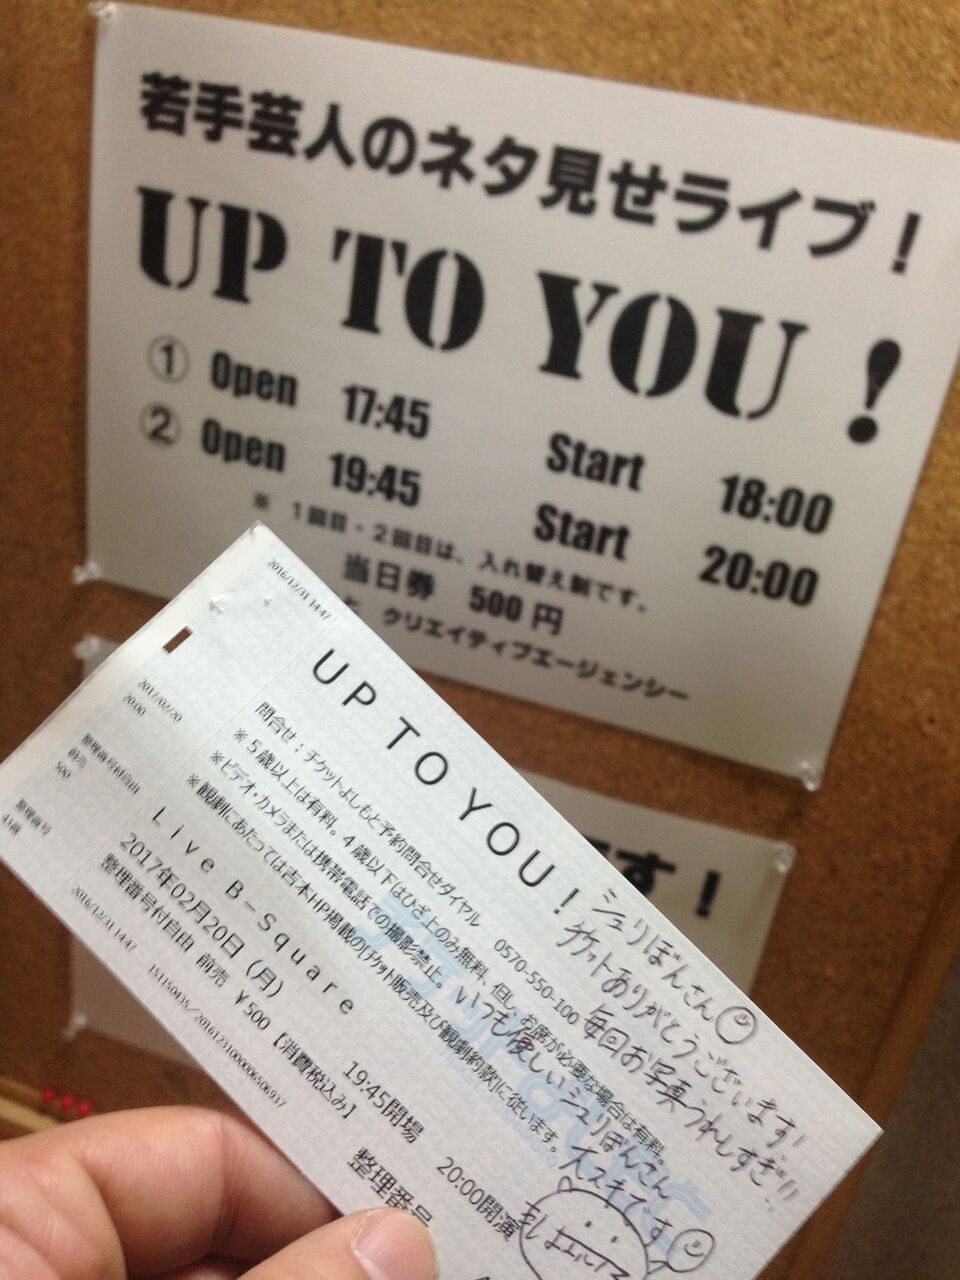 若手芸人のネタ見せライブ！
UP TO YOU !
① Open 17:45 Start 18:00
② Open 19:45 Start 20:00
※ 1回目・2回目は、入れ替え制です。
当日券 500円
クリエイティブエージェンシー
す！
2016/12/31 14:47
UP TO YOU!
問合せ：チケットよしもと予約問合せダイヤル 0570-550-100
※５歳以上は有料。４歳以下はひざ上のみ無料、但し、お席が必要な場合は有料。
※ビデオ・カメラまたは携帯電話での撮影禁止。
※観劇にあたっては吉本HP掲載の[チケット販売及び観劇約款]に従います。
Live B-Square
2017年02月20日（月） 19:45開場 20:00開演
整理番号付自由 前売 ￥500【消費税込み】
整理番号
2016/12/31 14:47
2017/02/20
20:00
整理番号付自由
前売
500
整理番号
シュリぼんさん
チケットありがとうございます!
毎回お写真うれしすぎ!!
いつも優しいシュリぼんさん
大スキです